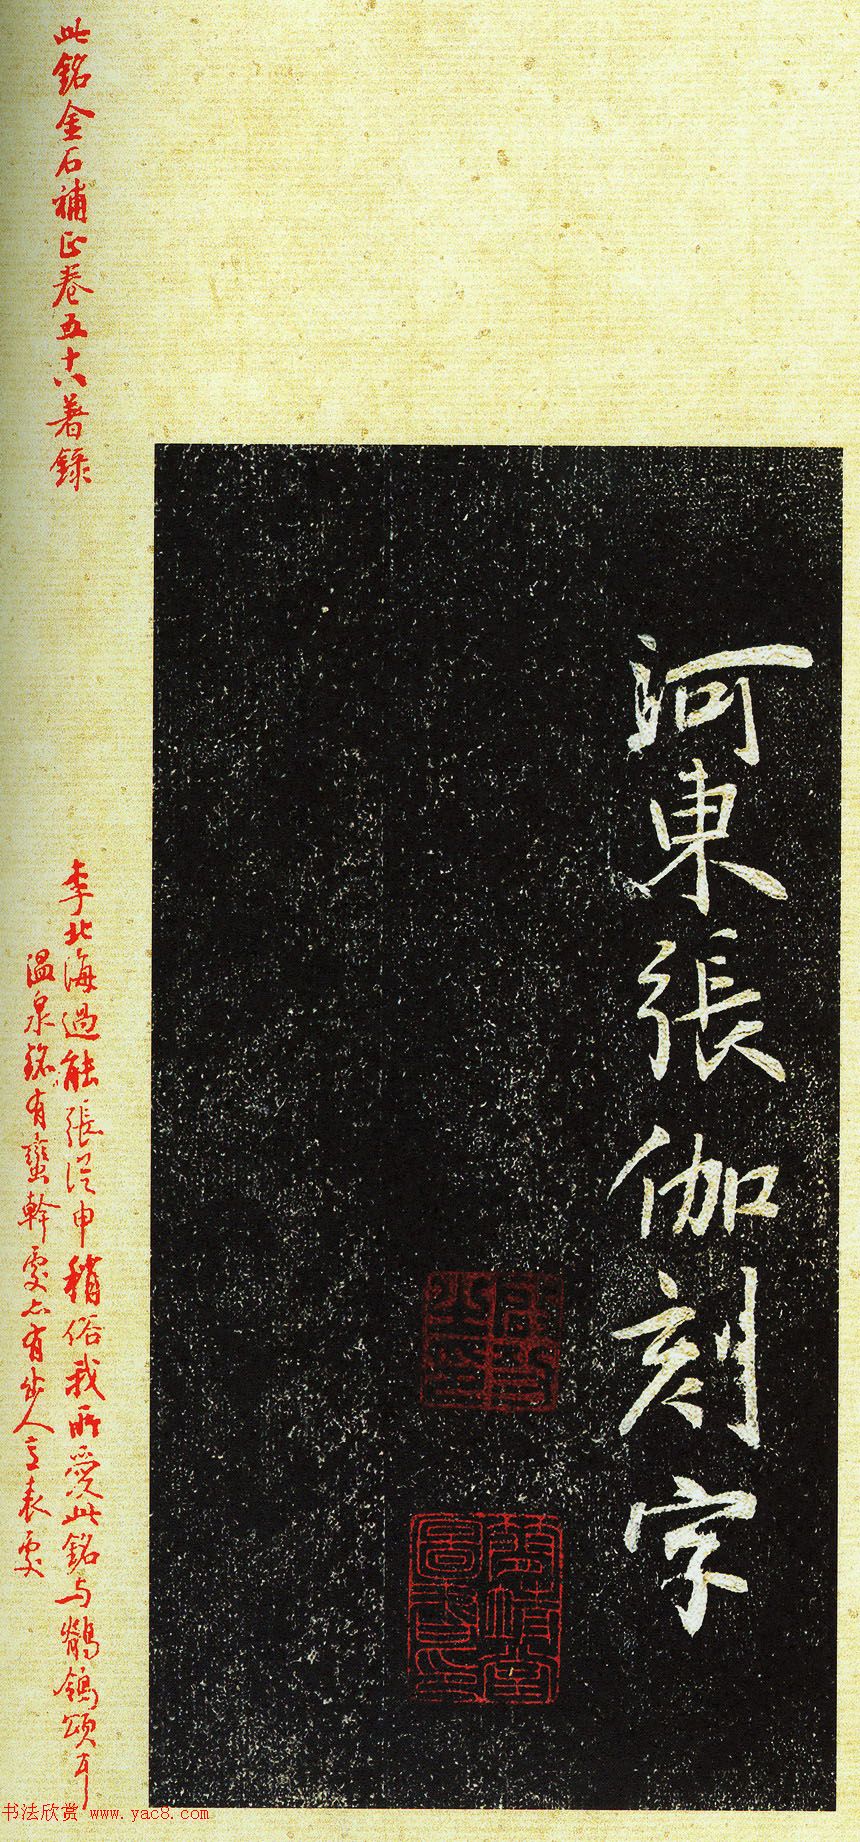 河東張伽刻字
此銘金石補正卷五十八著錄
李北海過能張從申稍俗我所愛此銘與鶺鴒頌耳
溫泉銘有蠻幹處亦有步人意表處
书法欣赏 www.yac8.com